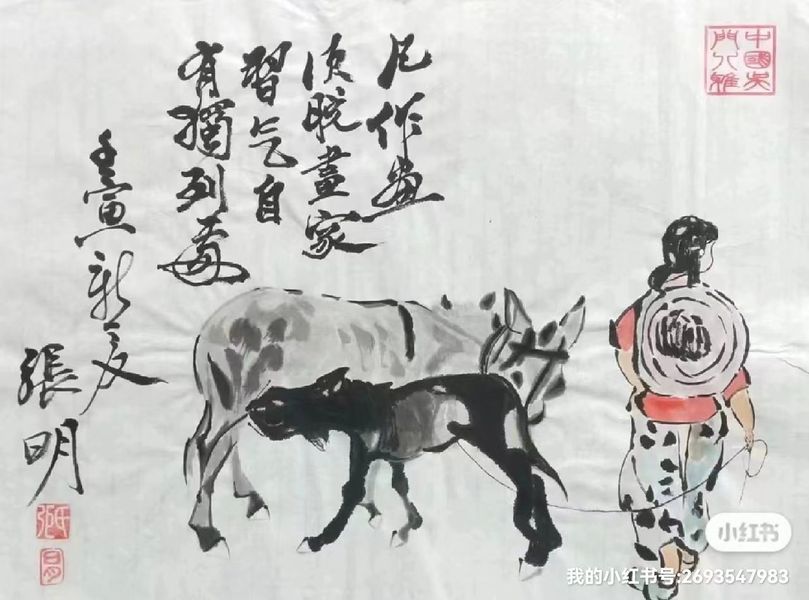 凡作畫
須脱畫家
習气自
有獨到處
壬寅新夏
張明
中國吳
門八雅
小红书
我的小红书号:2693547983